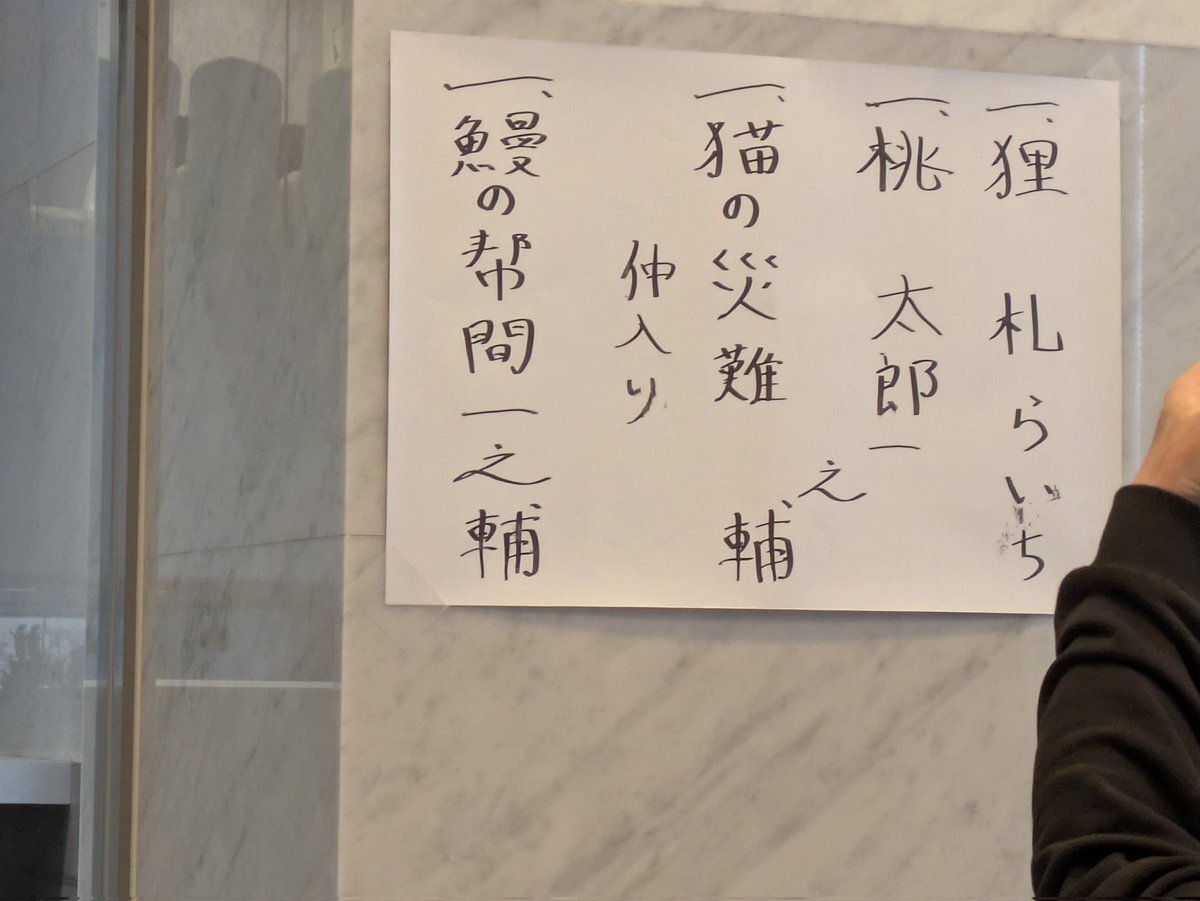 一、狸 札 らいち
一、桃 太郎
一、猫の災難
一之輔
仲入り
一、鰻の幇間 一之輔